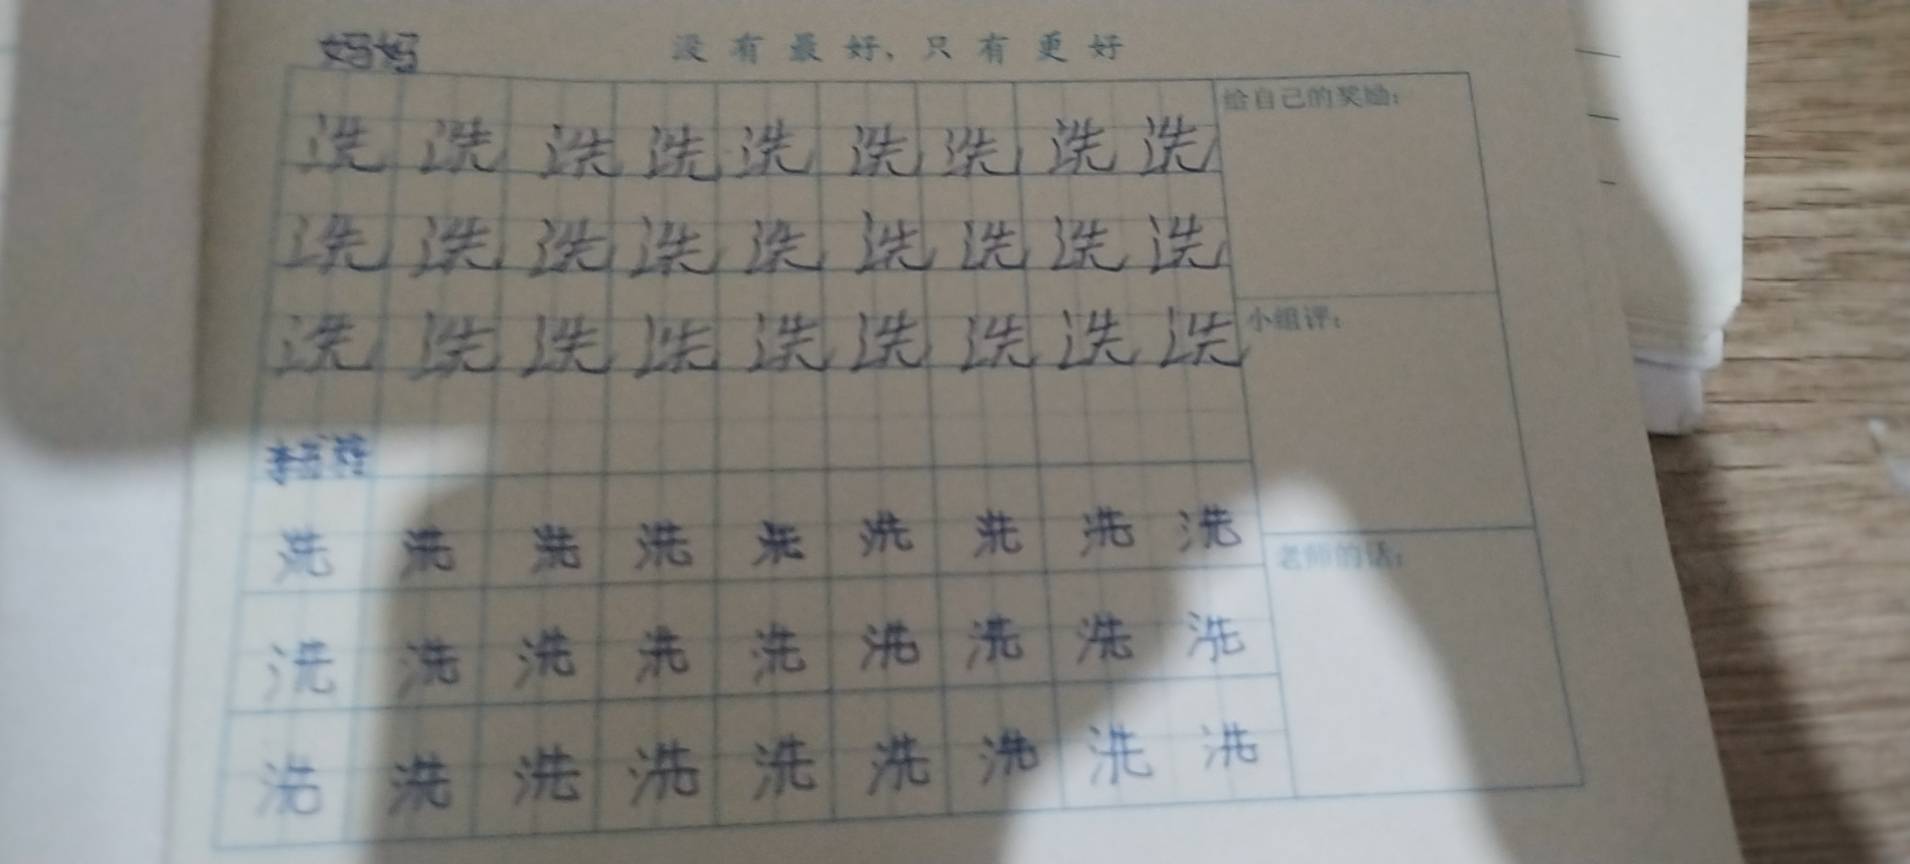 妈妈
没有最好，只有更好
给自己的奖励：
洗洗洗洗洗洗洗洗洗
洗洗洗洗洗洗洗洗洗
小组评：
洗洗洗洗洗洗洗洗洗
洗洗洗洗洗洗洗洗洗
老师的话：
洗洗洗洗洗洗洗洗洗
洗洗洗洗洗洗洗洗洗